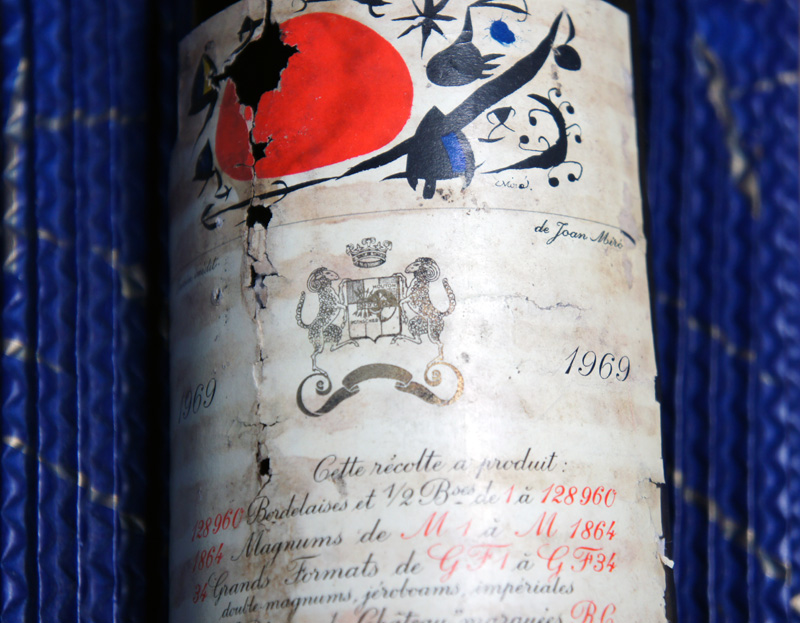 Miró.
de Joan Miró
inédit
1969
1969
Cette récolte a produit :
128960 Bordelaises et 1/2 Bses de 1 à 128960
1864 Magnums de M 1 à M 1864
34 Grands Formats de GF1 à GF34
double-magnums, jéroboams, impériales
Château" marquées R.C.